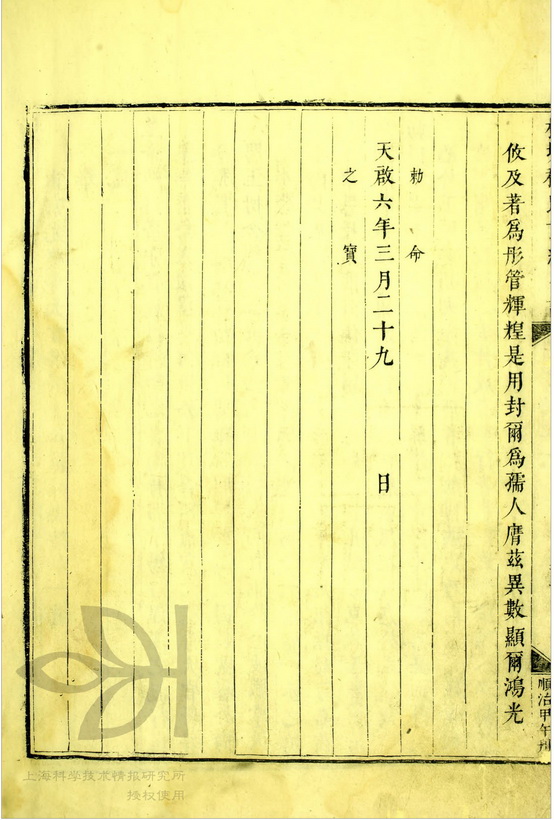 攸及著爲彤管輝煌是用封爾爲孺人膺茲異數顯爾鴻光
勅命
天啟六年三月二十九日
之寳
順治甲午
上海科学技术情报研究所
授权使用